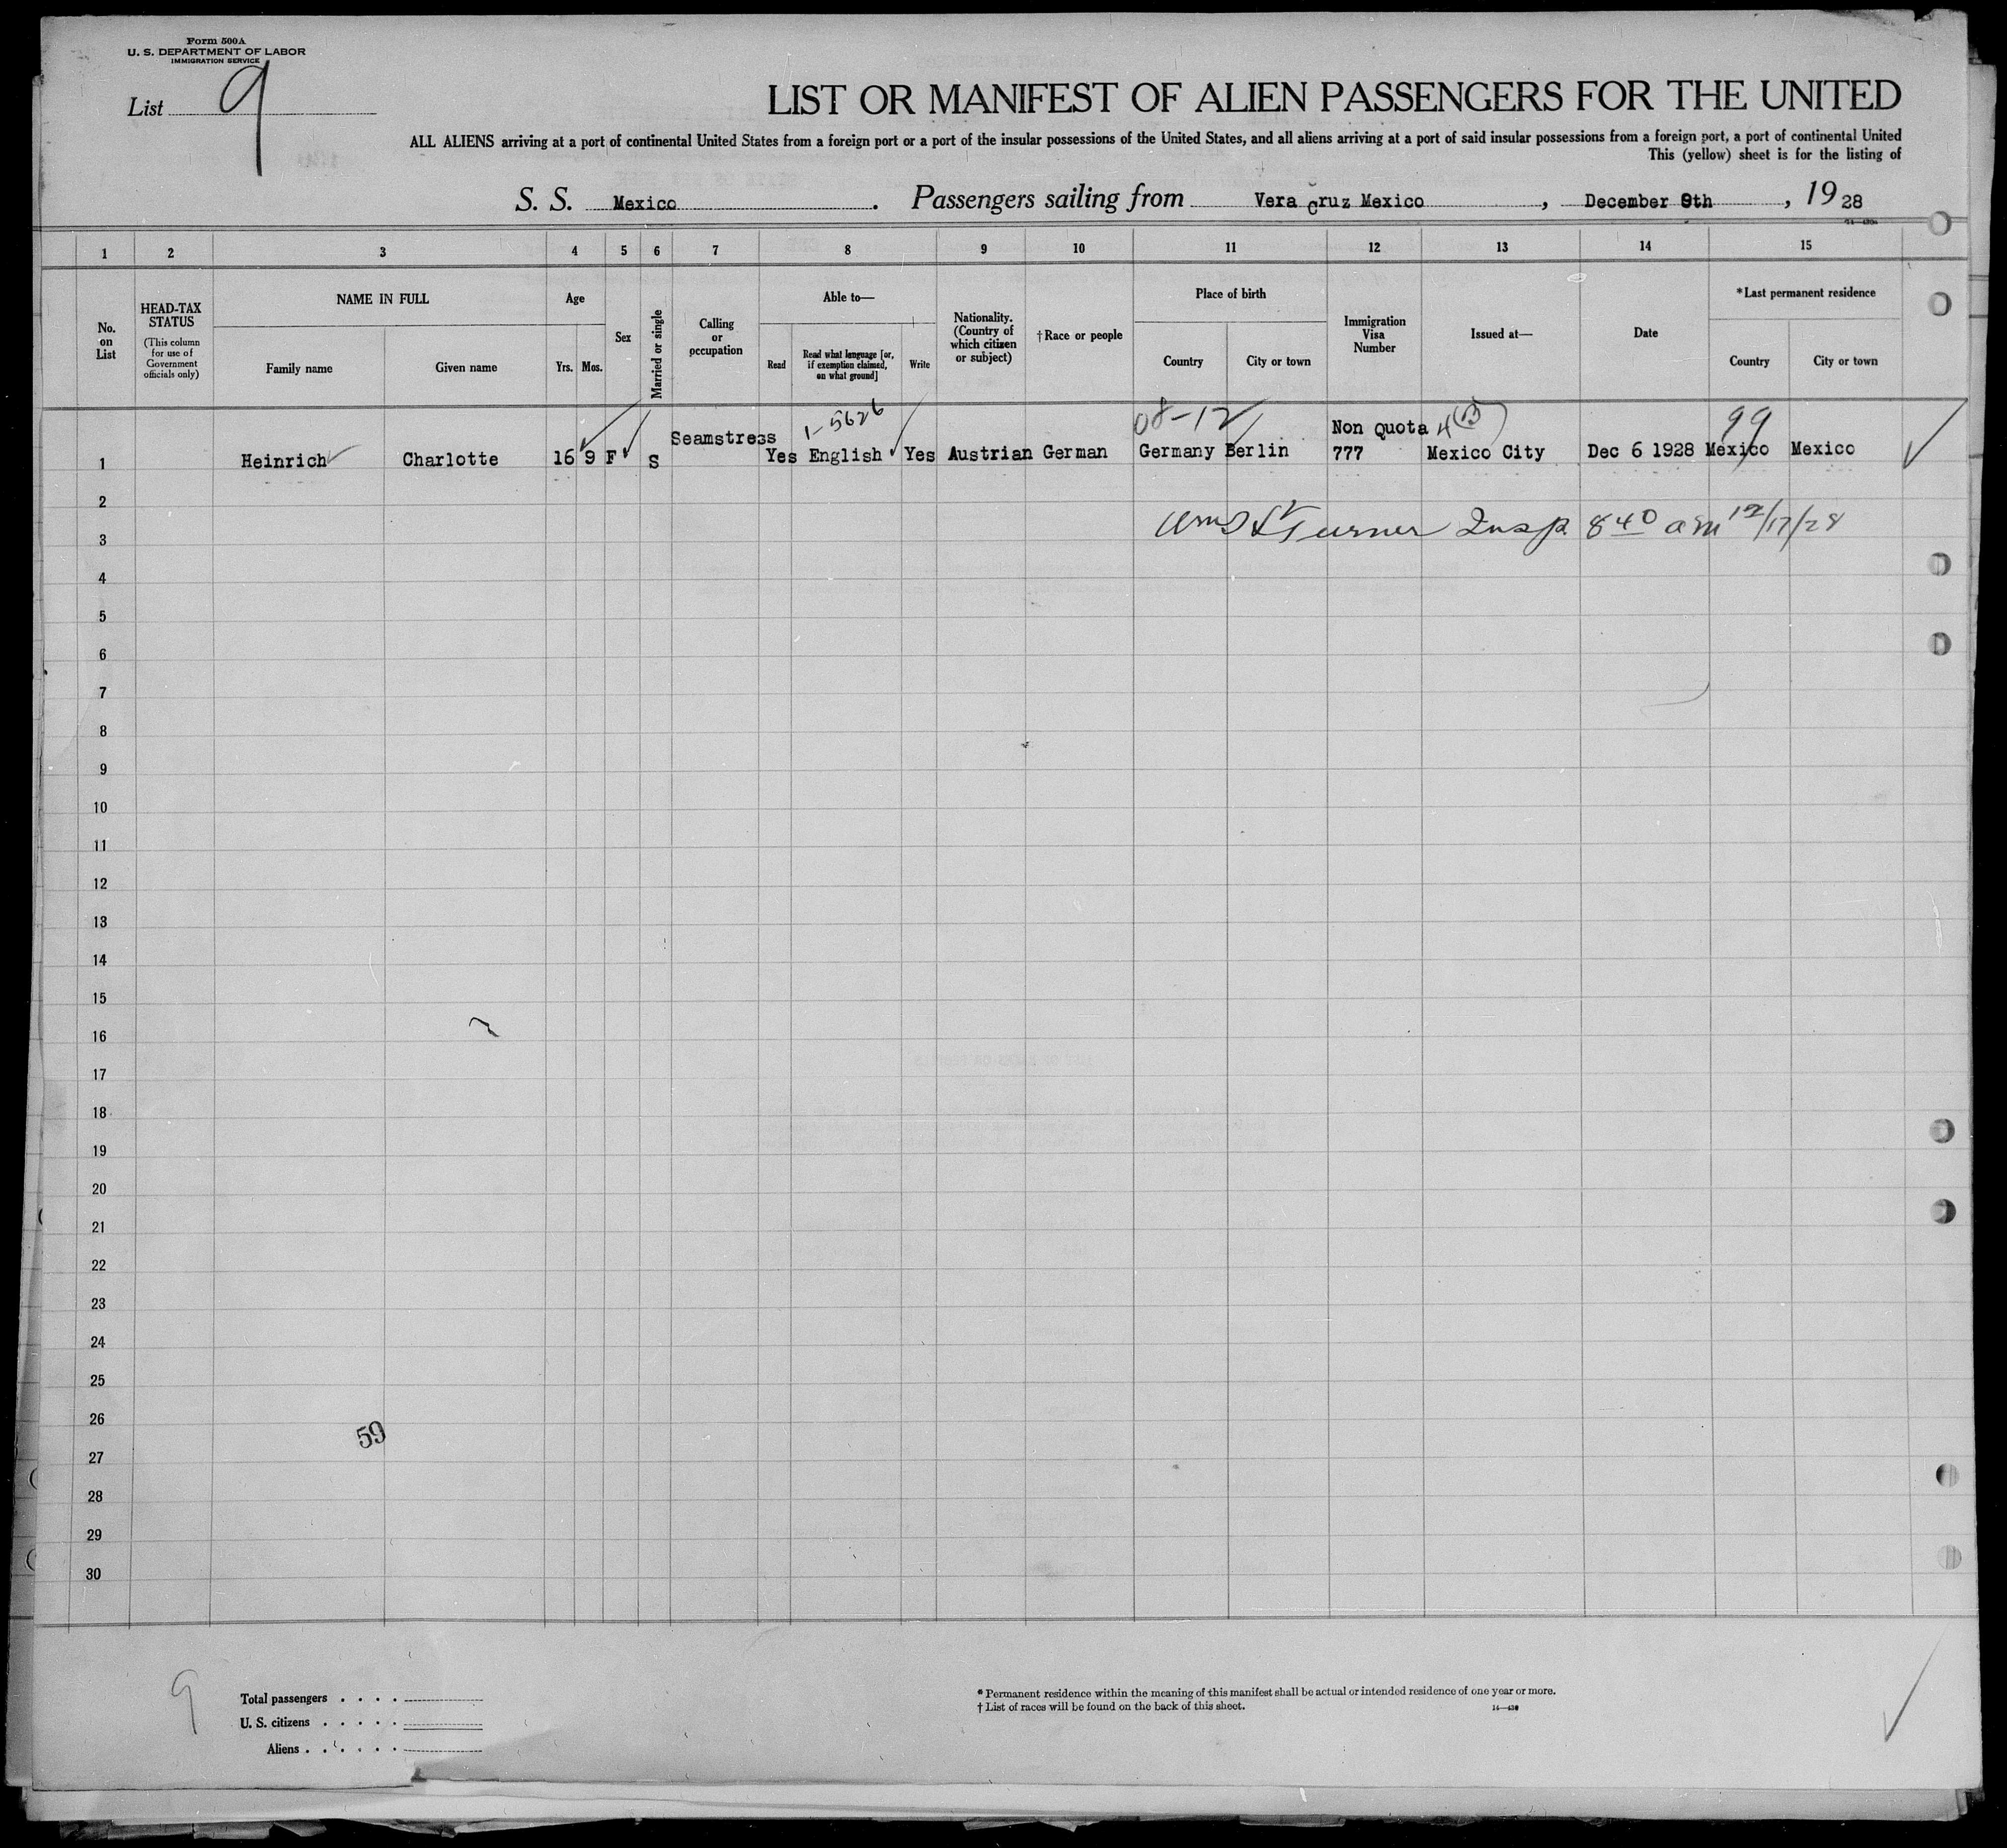 Form 500A
U. S. DEPARTMENT OF LABOR
IMMIGRATION SERVICE
List 9
LIST OR MANIFEST OF ALIEN PASSENGERS FOR THE UNITED
ALL ALIENS arriving at a port of continental United States from a foreign port or a port of the insular possessions of the United States, and all aliens arriving at a port of said insular possessions from a foreign port, a port of continental United
This (yellow) sheet is for the listing of
S. S. Mexico. Passengers sailing from Vera Cruz Mexico, December 9th, 1928
1 2 3 4 5 6 7 8 9 10 11 12 13 14 15
No. on List
HEAD-TAX STATUS
(This column for use of Government officials only)
NAME IN FULL
Family name Given name
Age
Yrs. Mos.
Sex
Married or single
Calling or occupation
Able to—
Read
Read what language [or, if exemption claimed, on what ground]
Write
Nationality. (Country of which citizen or subject)
†Race or people
Place of birth
Country City or town
Immigration Visa Number
Issued at—
Date
*Last permanent residence
Country City or town
1-5626 08-12 Non Quota 4(c) 99
1 Heinrich Charlotte 16 9 F S Seamstress Yes English Yes Austrian German Germany Berlin 777 Mexico City Dec 6 1928 Mexico Mexico
2
Wm S Turner Insp. 8 40 am 12/17/28
3
4
5
6
7
8
9
10
11
12
13
14
15
16
17
18
19
20
21
22
23
24
25
26
59
27
28
29
30
9
Total passengers . . . .
U. S. citizens . . . . .
Aliens . . . . . .
* Permanent residence within the meaning of this manifest shall be actual or intended residence of one year or more.
† List of races will be found on the back of this sheet.